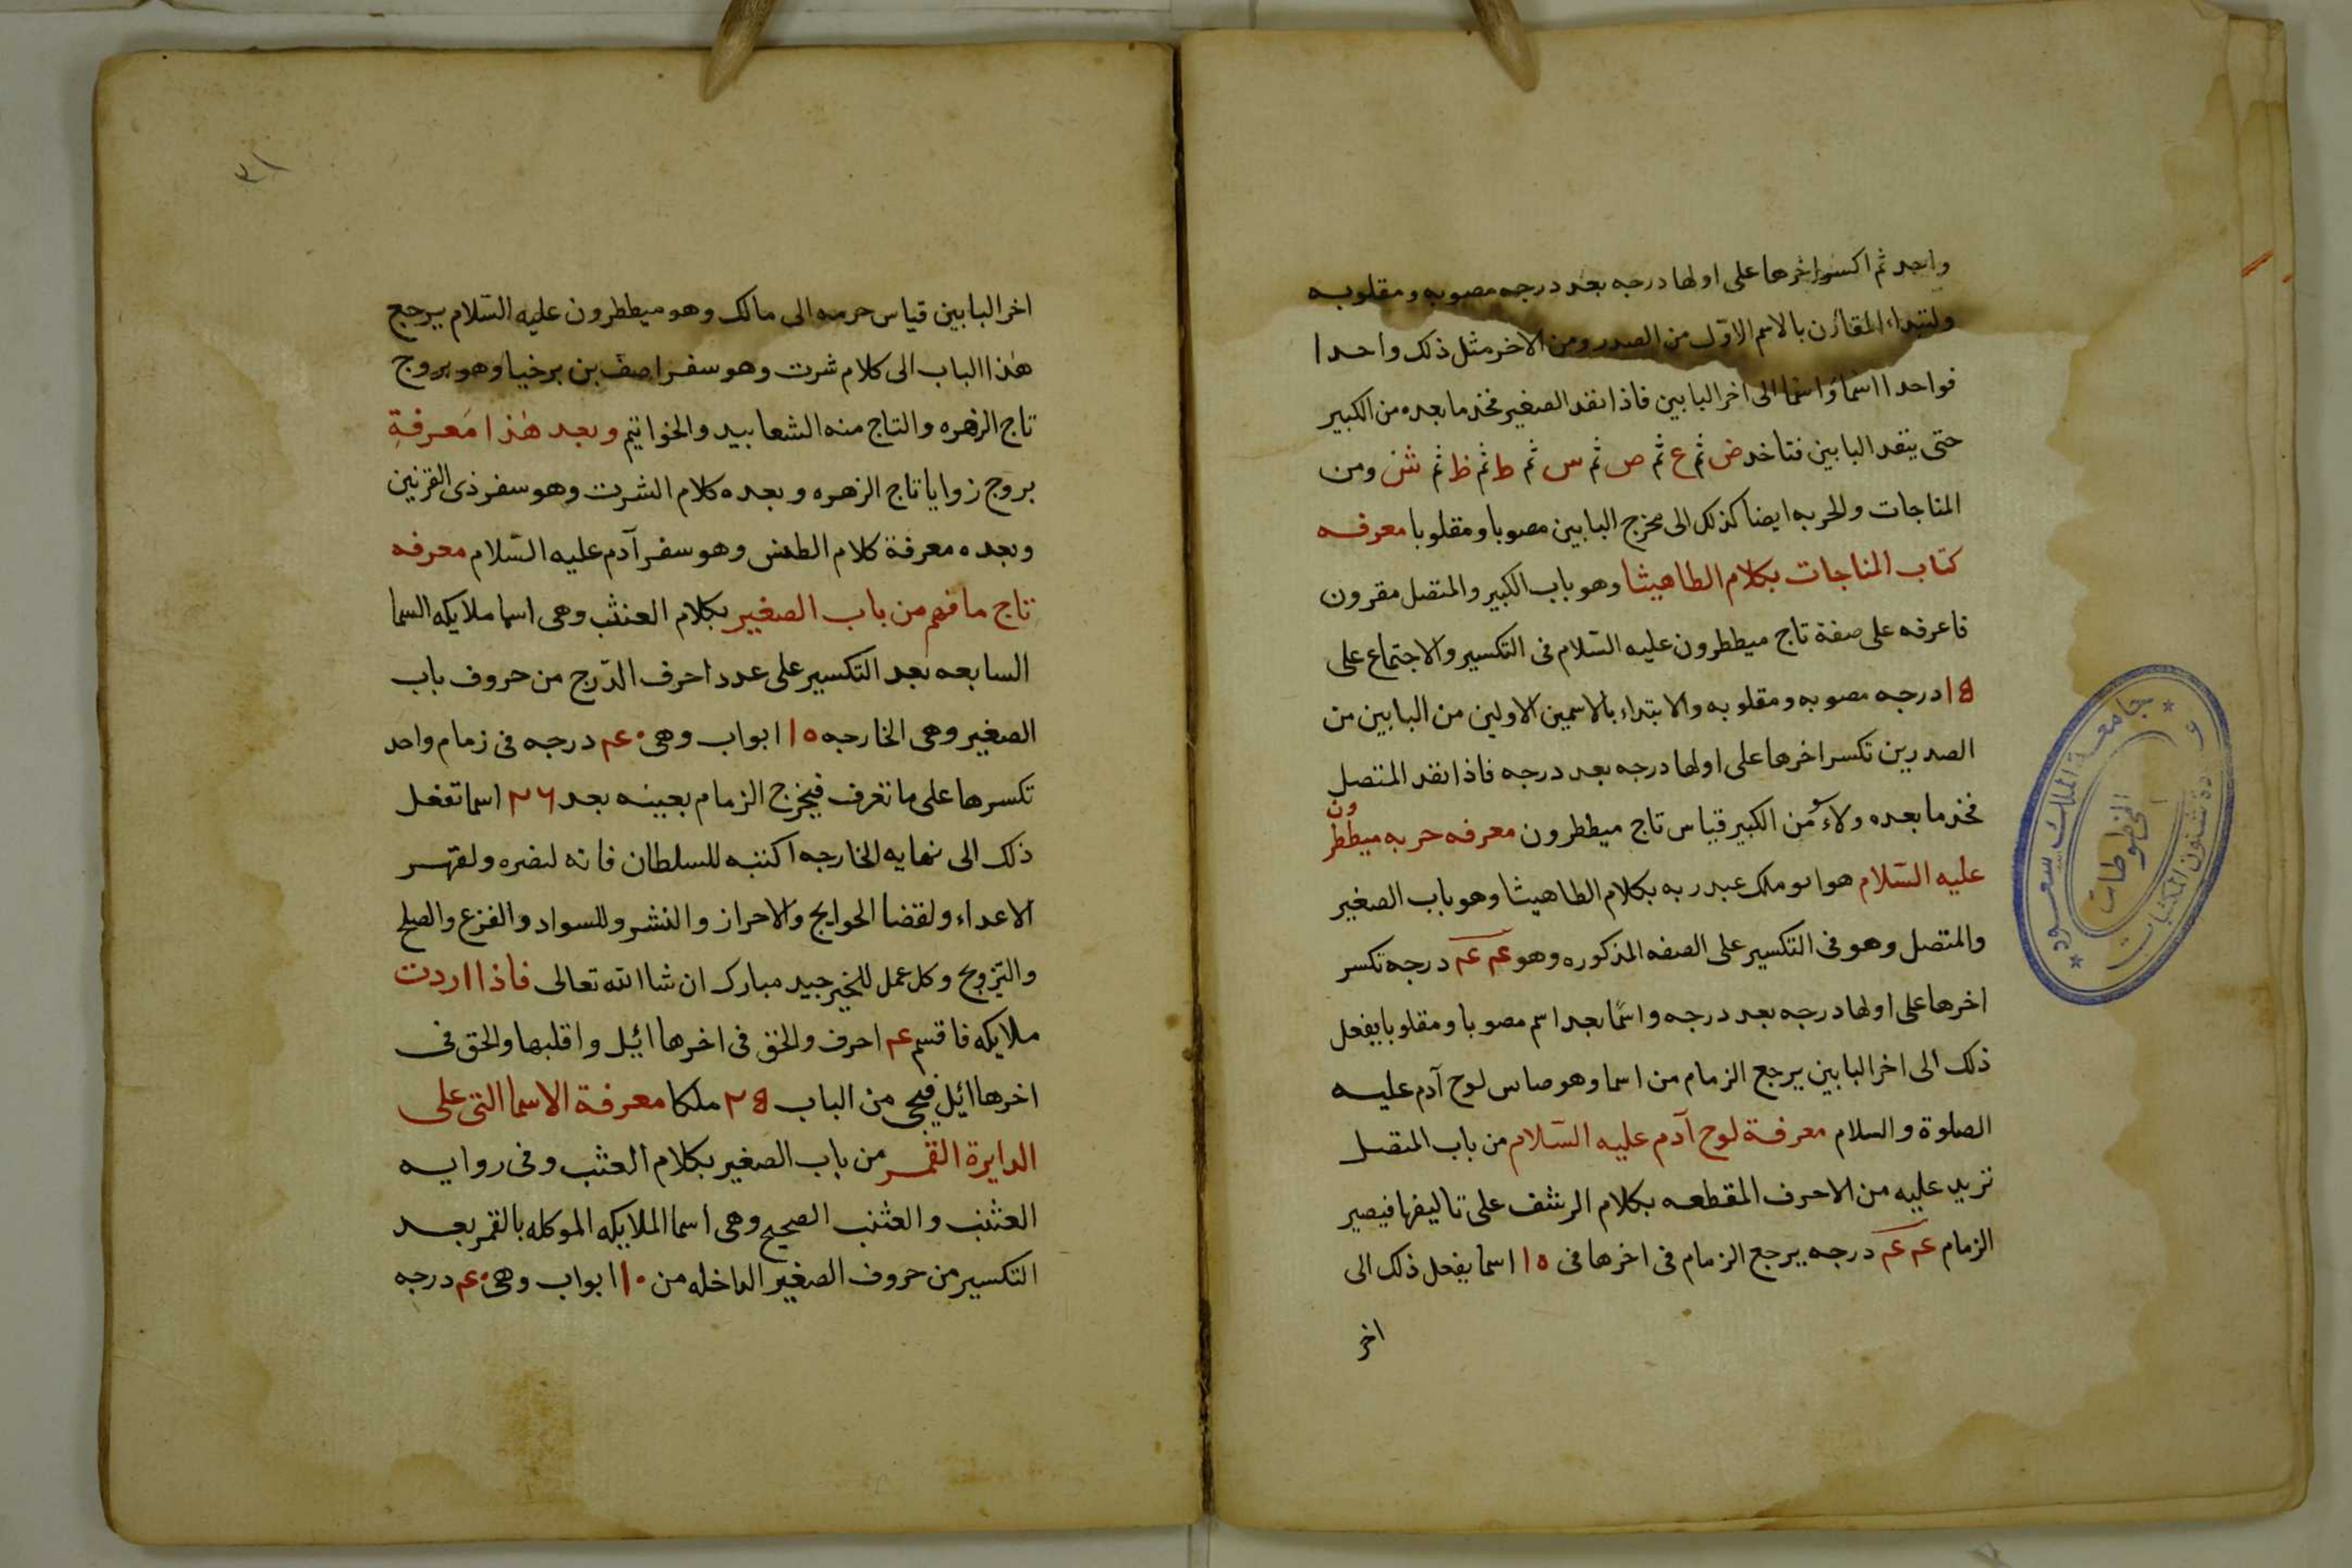 واحد ثم اكسر اخرها على اولها درجه بعد درجه مصوبه ومقلوبه
ولتبداء المقارن بالاسم الاول من الصدر ومن الاخر مثل ذلك واحدا
فواحدا اسما واسما الى اخر البابين فاذا نفد الصغير فخذ ما بعده من الكبير
حتى ينفد البابين فتاخد ض ثم ع ثم ص ثم س ثم ط ثم ظ ثم ش ومن
المناجات والحربه ايضا كذلك الى مخرج البابين مصوبا ومقلوبا معرفه
كتاب المناجات بكلام الطاهيثا وهو باب الكبير والمتصل مقرون
فاعرفه على صفة تاج ميططرون عليه السّلام فى التكسير والاجتماع على
١٥ درجه مصوبه ومقلوبه والابتداء بالاسمين الاولين من البابين من
الصدرين تكسر اخرها على اولها درجه بعد درجه فاذا نفد المتصل
فخذ ما بعده ولاءً من الكبير قياس تاج ميططرون معرفه حربه ميططرون
عليه السّلام هو ابو ملك عبد ربه بكلام الطاهيثا وهو باب الصغير
والمتصل وهو فى التكسير على الصفه المذكوره وهو عم عم درجه تكسر
اخرها على اولها درجه بعد درجه واسمًا بعد اسم مصوبا ومقلوبا يفعل
ذلك الى اخر البابين يرجع الزمام من اسما وهو لوح آدم عليه
الصلوة والسلام معرفة لوح آدم عليه السّلام من باب المتصل
تزيد عليه من الاحرف المقطعه بكلام الرشف على تاليفها فيصير
الزمام عم عم درجه يرجع الزمام فى اخرها فى ١٥ اسما يفعل ذلك الى
اخر
جامعة الملك سعود
المخطوطات
شئون المكتبات
٣١
اخر البابين قياس حرمه الى مالك وهو ميططرون عليه السّلام يرجع
هٰذا الباب الى كلام شرت وهو سفر اصف بن برخيا وهو بروج
تاج الزهره والتاج منه الشعابيد والخواتيم وبعد هٰذا مَعرفةِ
بروج زوايا تاج الزهره وبعده كلام الشرت وهو سفر ذى القرنين
وبعده معرفة كلام الطمس وهو سفر آدم عليه السّلام معرفه
تاج ما فهم من باب الصغير بكلام العنثب وهى اسما ملايكه السما
السابعه بعد التكسير على عدد احرف الدّرج من حروف باب
الصغير وهى الخارجه ١٥ ابواب وهى ٤٠ درجه فى زمام واحد
تكسرها على ما تعرف فيخرج الزمام بعينه بعد ٢٦ اسما تفعل
ذلك الى نهايه الخارجه اكتبه للسلطان فانه لنضره ولقهر
الاعداء ولقضا الحوايج والاحراز والنشر وللسواد والفزع والصلح
والتزويج وكل عمل للخير جيد مبارك ان شا الله تعالى فاذا اردت
ملايكه فاقسم ٤ احرف والحق فى اخرها ائيل واقلبها والحق فى
اخرها ائيل فيجى من الباب ٢٥ ملكا معرفة الاسما التى على
الدايرة القمر من باب الصغير بكلام العثب وفى روايه
العثنب والعثنب الصحيح وهى اسما الملايكه الموكله بالقمر بعد
التكسير من حروف الصغير الداخله من ١٠ ابواب وهى ٤٠ درجه